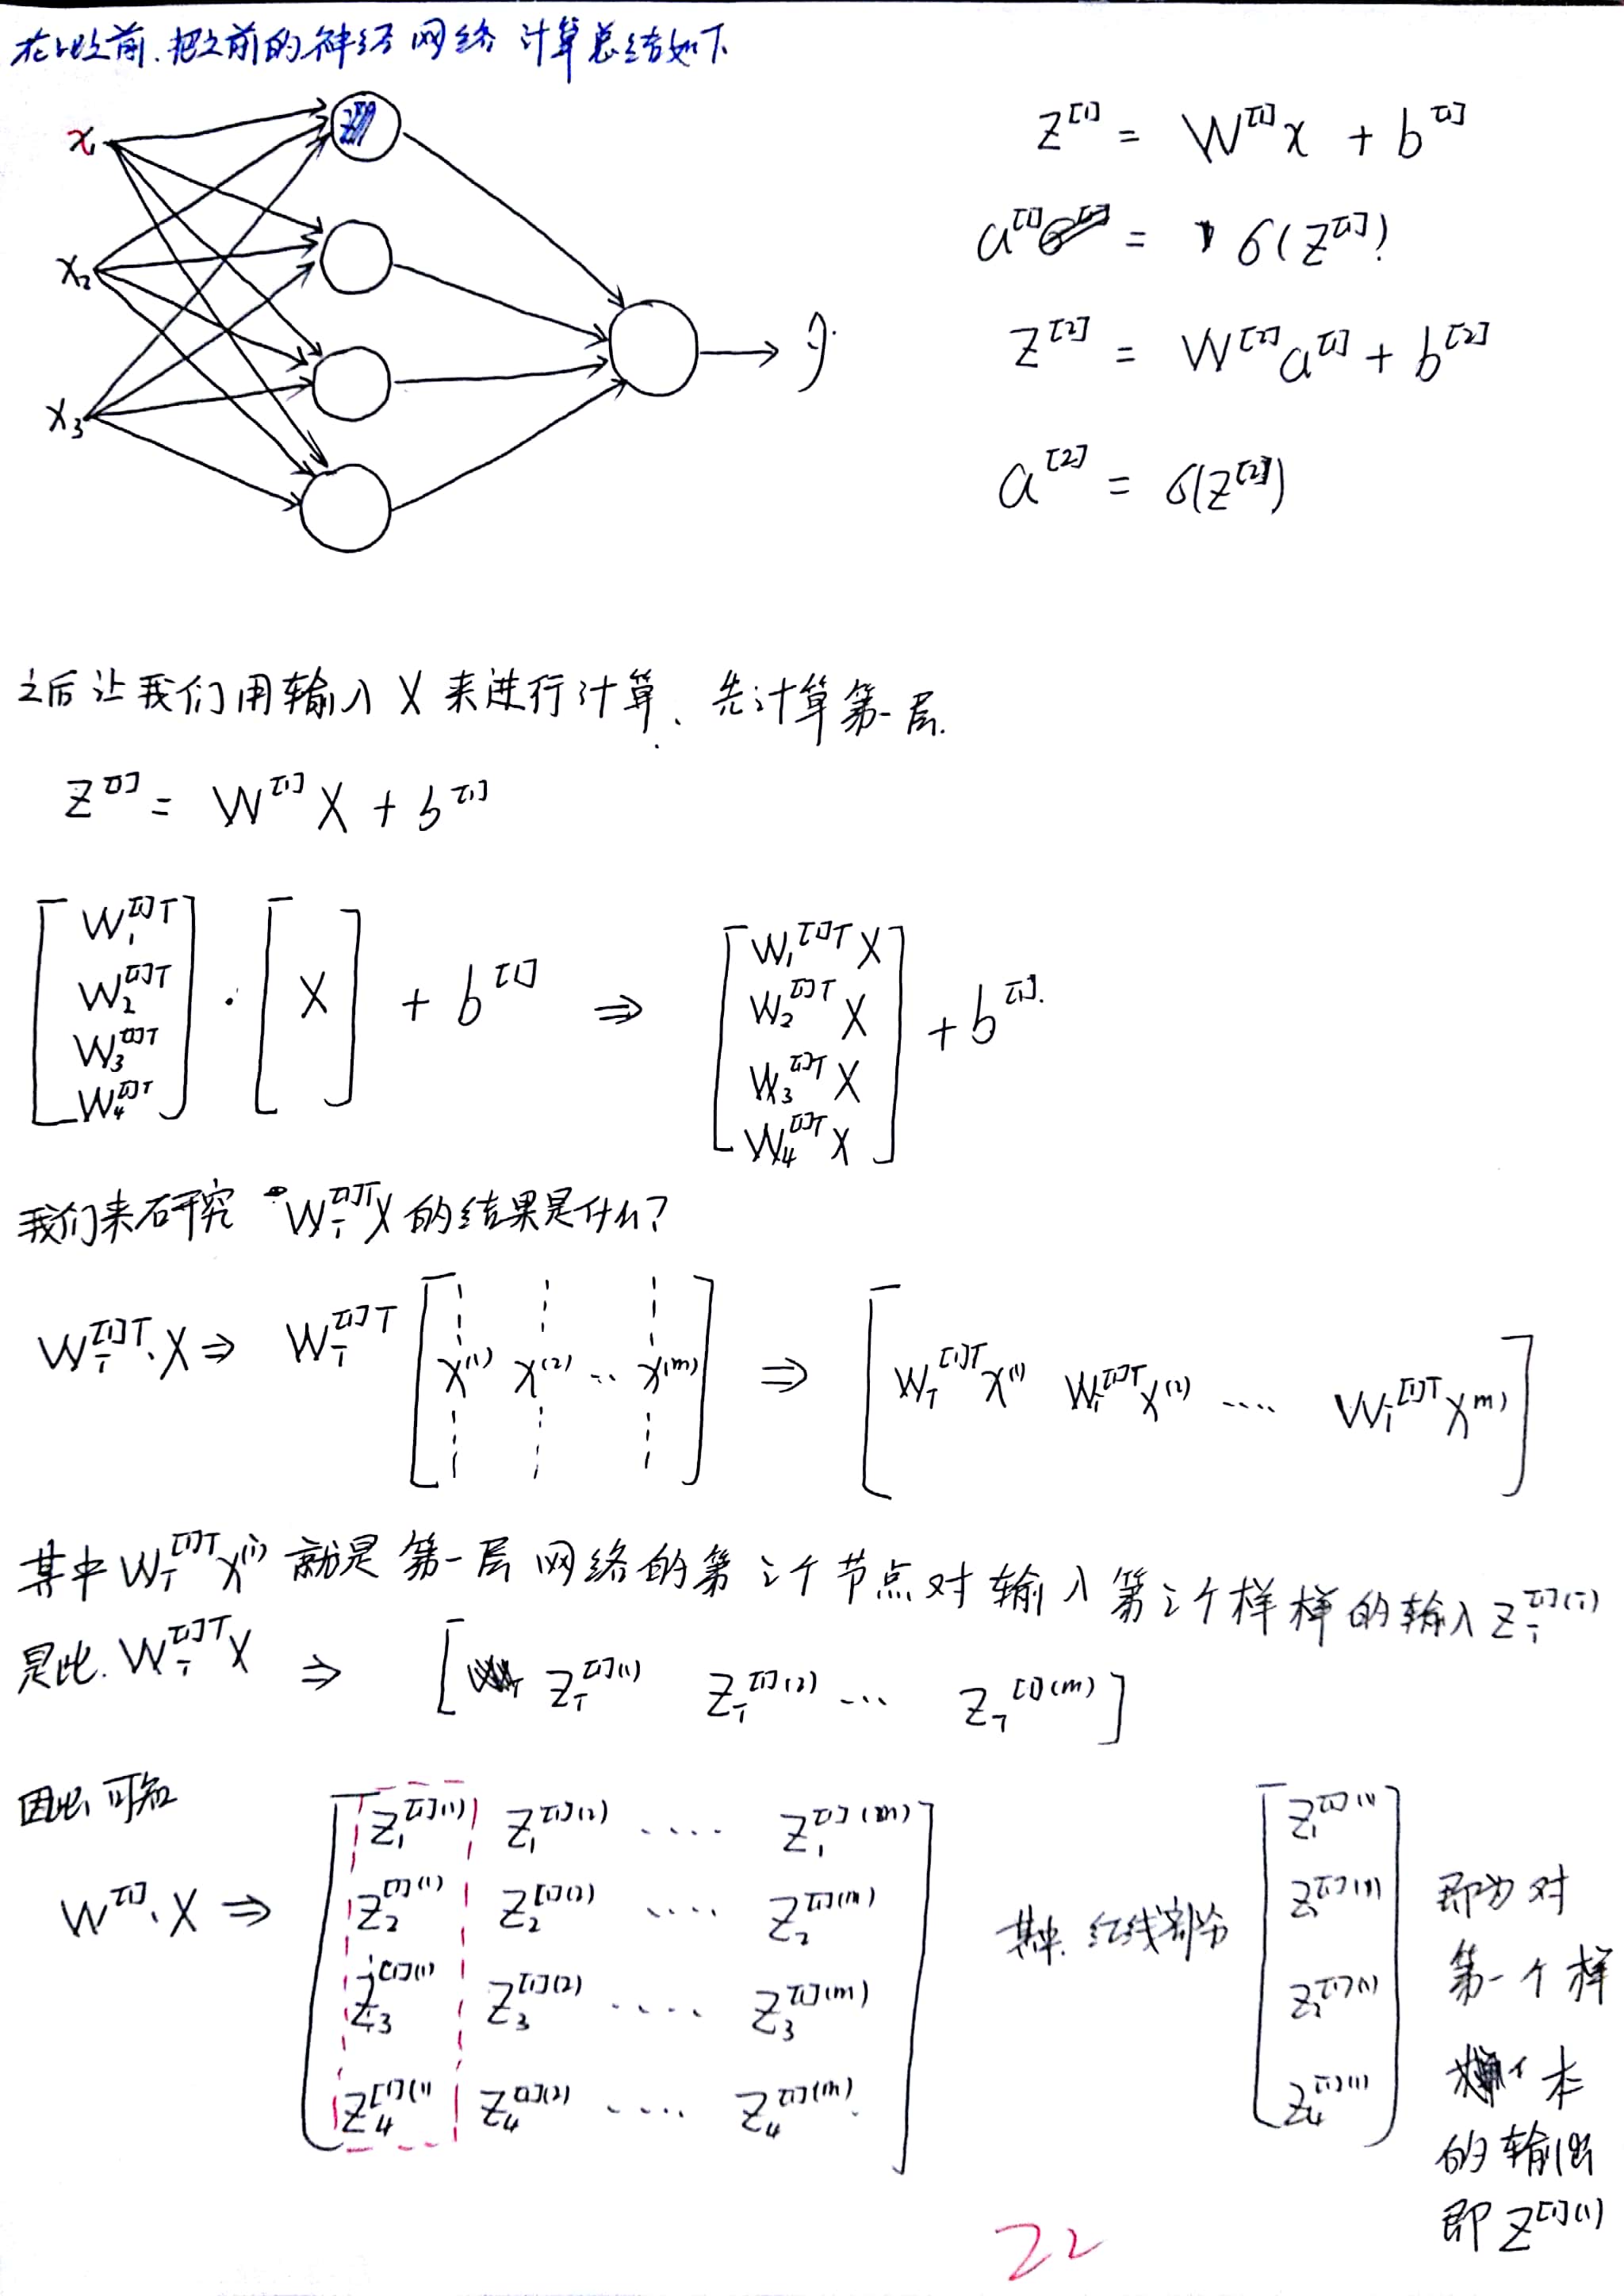 在此之前.把之前的神经网络 计算总结如下
x₁
x₂
x₃
ŷ
z^[1] = W^[1]x + b^[1]
a^[1] = σ(z^[1])
z^[2] = W^[2]a^[1] + b^[2]
a^[2] = σ(z^[2])
之后让我们用输入 X 来进行计算、先计算第一层.
Z^[1] = W^[1] X + b^[1]
[W₁^[1]T W₂^[1]T W₃^[1]T W₄^[1]T] · [X] + b^[1] ⇒ [W₁^[1]T X W₂^[1]T X W₃^[1]T X W₄^[1]T X] + b^[1].
我们来研究 Wᵢ^[1]T X 的结果是什么?
Wᵢ^[1]T · X ⇒ Wᵢ^[1]T [x^(1) x^(2) … x^(m)] ⇒ [Wᵢ^[1]T x^(1) Wᵢ^[1]T x^(2) .... Wᵢ^[1]T x^(m)]
其中 Wᵢ^[1]T x^(i) 就是 第一层 网络的第 i 个节点对 输入 第 i 个样样的输入 zᵢ^[1](i)
是此. Wᵢ^[1]T X ⇒ [zᵢ^[1](1) zᵢ^[1](2) … zᵢ^[1](m)]
因此可知
W^[1] · X ⇒
z₁^[1](1) z₁^[1](2) .... z₁^[1](m)
z₂^[1](1) z₂^[1](2) .... z₂^[1](m)
z₃^[1](1) z₃^[1](2) .... z₃^[1](m)
z₄^[1](1) z₄^[1](2) .... z₄^[1](m)
其中. 红线部分
z₁^[1](1)
z₄^[1](1)
即为对
第一个样
本
的输出
即 z^[1](1)
22